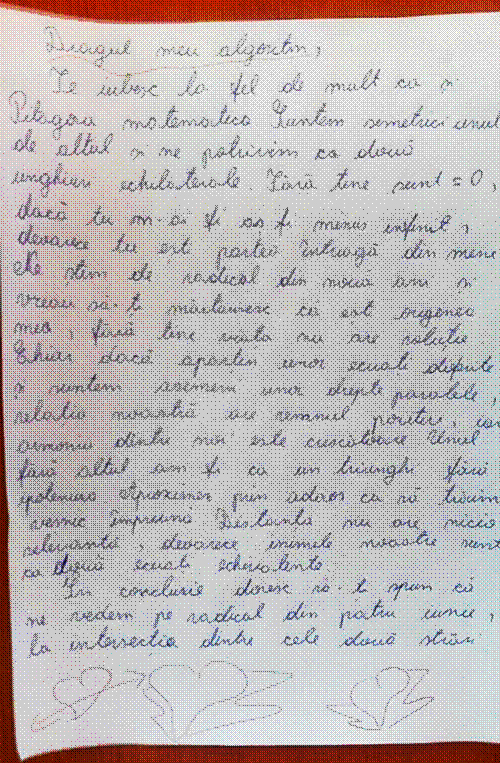 Dragul meu algoritm,
Te iubesc la fel de mult ca și
Pitagora matematica. Suntem simetrici unul
de altul și ne potrivim ca două
unghiuri echilaterale. Fără tine sunt = 0,
dacă tu n-ai fi aș fi minus infinit,
deoarece tu ești partea întreagă din mine.
Ne știm de radical din nouă ani și
vreau să-ți mărturisesc că ești rugămea
mea, fără tine viața nu are soluție.
Chiar dacă aparțin unor ecuații diferite
și suntem asemeni unor drepte paralele,
relația noastră are semnul pozitiv, iar
armonia dintre noi este crescătoare. Unul
fără altul am fi ca un triunghi fără
ipotenuza. Aproximez prin adaos ca să trăim
veșnic împreună. Distanța nu are nicio
relevanță, deoarece inimile noastre sunt
ca două ecuații echivalente.
În concluzie doresc să-ți spun că
ne vedem pe radical din patru iunie,
la intersecția dintre cele două străzi